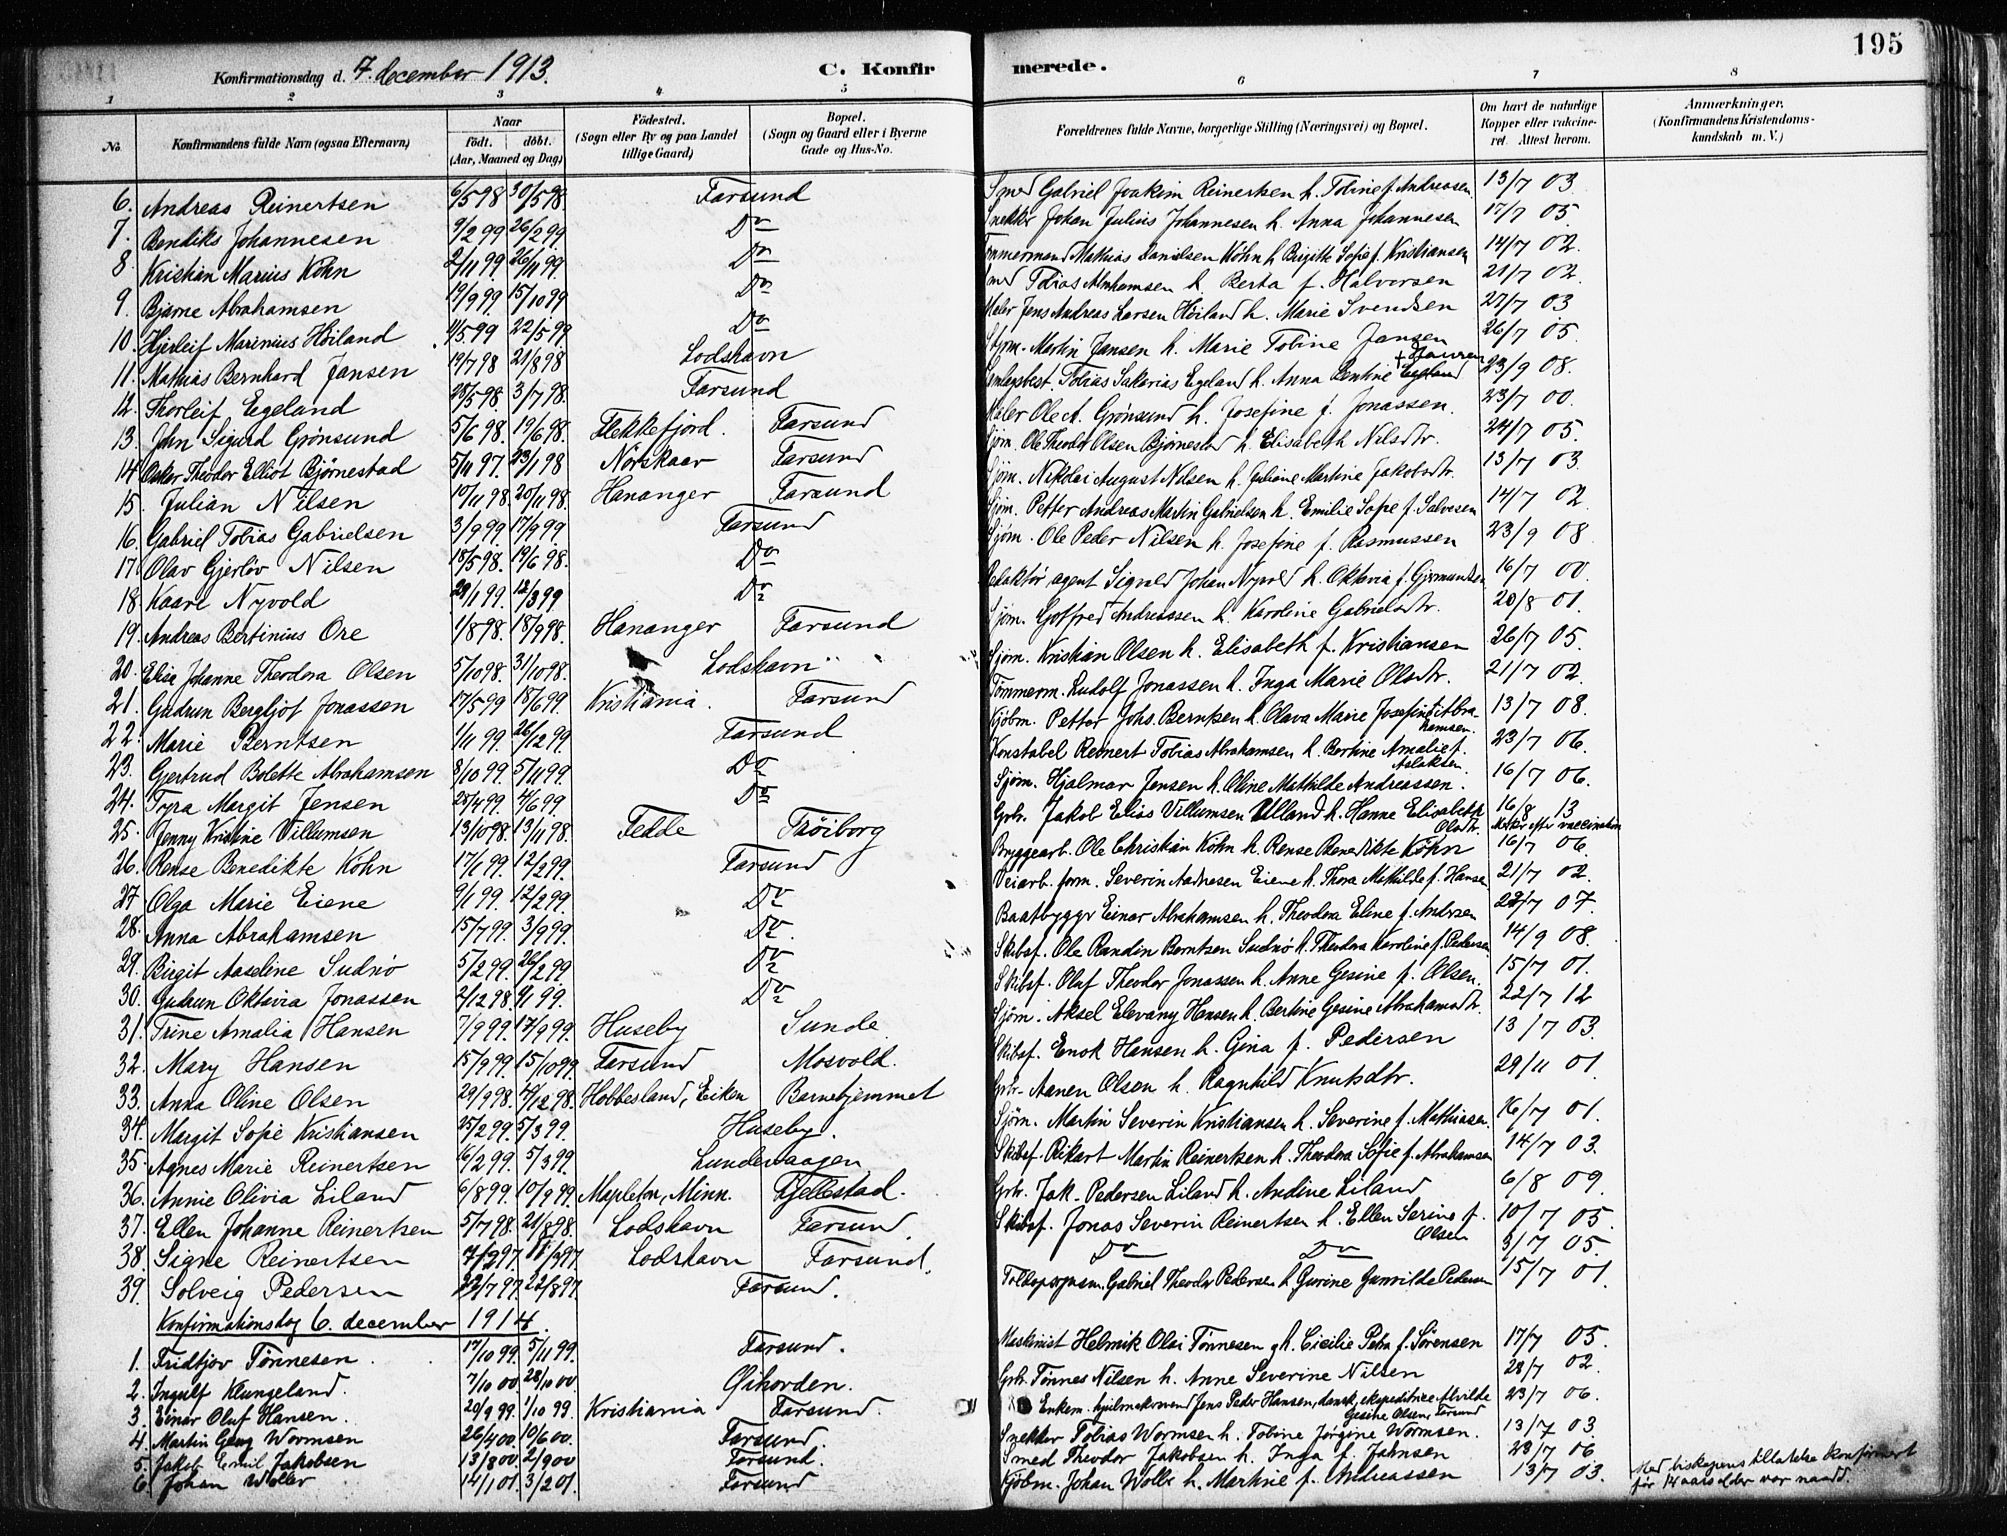 195
Konfirmationsdag d. 7. december 1913. C. Konfirmerede.
1 2 3 4 5 6 7 8
No. Konfirmandens fulde Navn (ogsaa Efternavn) Naar født. døbt. (Aar, Maaned og Dag) Fødested. (Sogn eller By og paa Landet tillige Gaard) Bopæl. (Sogn og Gaard eller i Byerne Gade og Hus-No. Forældrenes fulde Navne, borgerlige Stilling (Næringsvei) og Bopæl. Om havt de naturlige Kopper eller vakcineret. Attest herom. Anmærkninger, (Konfirmandens Kristendomskundskab m. V.)
6. Andreas Reinertsen 6/5 98 30/5 98. Farsund Smed Gabriel Joakim Reinertsen h. Tobine f. Andreasen 13/7 03
7. Bendiks Johannesen 9/2 99 26/2 99. Do Snekker Johan Julius Johannesen h. Anna Johannesen 17/7 05.
8 Kristian Marius Köhn 2/11 99 26/11 99. Do Tømmermand Mathias Danielsen Köhn h. Birgitte Sofie f. Kristiansen 14/7 02.
9. Bjarne Abrahamsen 19/9 99 15/10 99 Do Smed Tobias Abrahamsen h. Berta f. Halvorsen 21/7 02
10. Hjerleif Marinius Høiland 4/5 99 22/5 99. Do Maler Jens Andreas Larsen Høiland h. Marie Svendsen 27/7 03
11. Mathias Bernhard Jansen 19/7 98 21/8 98 Lodshavn Styrm. Martin Jansen h. Marie Tobine Jansen 26/7 05.
12. Thorleif Egeland 28/5 98. 3/7 98. Farsund Tobias Sakarias Egeland h. Anna Bentine 23/9 08.
13. John Sigurd Grønsund 5/6 98. 19/6 98. Flekkefjord. Farsund Maler Ole A. Grønsund h. Josefine f. Jonassen. 23/7 00.
14. Oskar Theodor Elliot Bjørnestad 5/11 97. 23/1 98 Nørskaar Farsund Sjøm. Ole Theodor Olsen Bjørnestad h. Elisabeth Nilsdtr. 24/7 05.
15. Julian Nilsen 10/11 98. 20/11 98. Hananger Farsund Sjøm. Nikolai August Nilsen h. Juliane Martine Jakobsdtr. 13/7 03.
16. Gabriel Tobias Gabrielsen 3/9 99. 17/9 99. Farsund Sjøm. Petter Andreas Martin Gabrielsen h. Emilie Sofie f. Salvesen 14/7 02
17. Olav Gjerløv Nilsen 18/5 98. 19/6 98. Do Sjøm. Ole Peder Nilsen h. Josefine f. Rasmussen 23/9 08
18 Kaare Nyvold 29/1 99. 12/3 99 Do Redaktør agent Sigvald Johan Nyvold h. Oktavia f. Gjermundsen 16/7 00.
19. Andreas Bertinius Ore 1/8 98. 18/9 98. Hananger Farsund Sjøm. Gotfred Andreassen h. Karoline Gabrielsdtr. 20/8 01.
20. Elisa Johanne Theodora Olsen 5/10 98. 31/10 98. Lodshavn Sjøm. Kristian Olsen h. Elisabeth f. Kristiansen 26/7 05.
21. Gudrun Bergljot Jonassen 17/5 99 18/6 99. Kristiania. Farsund Tømmerm. Ludolf Jonassen h. Inga Marie Olsdtr. 21/7 02.
22. Marie Berntsen 1/11 99. 26/12 99 Farsund Kjøbm. Petter Johs. Berntsen h. Olava Marie Josefine f. Abrahamsen. 13/7 08.
23. Gjertrud Bolette Abrahamsen 8/10 99. 5/11 99. Do Konstabel Reinert Tobias Abrahamsen h. Bertine Amalie f. Aslaksen. 23/7 06.
24. Tyra Margit Jensen 25/4 99. 4/6 99. Do Sjøm. Hjalmar Jensen h. Oline Mathilde Andreassen. 16/7 06.
25. Jenny Kristine Villumsen 13/10 98. 13/11 98. Fedde Trøiborg Grbr. Jakob Elias Villumsen Ulland h. Hanne Elisabeth Olsdtr. 16/8 13 Merker efter vaccination
26. Rense Benedikte Köhn 17/1 99. 12/2 99. Farsund Bryggearb. Ole Christian Köhn h. Rense Benedikte Köhn 16/7 06.
27 Olga Marie Eiene 9/1 99. 12/2 99. Do Veiarb. form. Severin Aadnesen Eiene h. Thora Mathilde f. Hansen 21/7 02.
28. Anna Abrahamsen 15/7 99. 3/9 99. Do. Baatbyggr Einar Abrahamsen h. Theodora Eline f. Andersen 22/7 07.
29. Birgit Aaseline Sudnø 5/2 99. 26/2 99 Do Skibsf. Ole Randin Berntsen Sudnø h. Theodora Karoline f. Pedersen 14/9 08.
30. Gudrun Oktavia Jonassen 2/12 98. 9/1 99. Do Skibsf. Olaf Theodor Jonassen h. Anne Gesine f. Olsen. 15/7 01.
31. Trine Amalia Hansen 7/9 99. 17/9 99. Huseby Sunde Sjøm. Aksel Elevany Hansen h. Bertine Gesine Abrahamsdtr. 22/7 12
32. Mary Hansen 15/9 99. 15/10 99. Farsund Mosvold. Skibsf. Enok Hansen h. Gina f. Pedersen 13/7 03.
33. Anna Oline Olsen 29/9 98. 4/12 98. Hobbesland, Eiken Barnehjemmet Grbr. Aanen Olsen h. Ragnhild Knutsdtr. 29/11 01.
34. Margit Sofie Kristiansen 25/2 99. 5/3 99. Huseby. Sjøm. Martin Severin Kristiansen h. Severine f. Mathiassen. 16/7 01.
35. Agnes Marie Reinertsen 16/2 99. 5/3 99. Lundevaagen Skibsf. Rikart Martin Reinertsen h. Theodora Sofie f. Abrahamsen 14/7 03.
36. Annie Olivia Liland 6/8 99. 10/9 99. Mapleton, Minn. Kjellestad. Grbr. Jak. Pedersen Liland h. Andine Liland 6/8 09.
37. Ellen Johanne Reinertsen 5/7 98. 21/8 98. Lodshavn Farsund. Skibsf. Jonas Severin Reinertsen h. Ellen Serine f. Olsen 10/7 05.
38. Signe Reinertsen Lodshavn Farsund. Do Do 3/7 05.
39. Solveig Pedersen 22/7 97. 22/8 97. Farsund. Toldopsynsm. Gabriel Theodor Pedersen h. Gurine Gunvilde Pedersen 15/7 01.
Konfirmationsdag 6. december 1914.
1. Fridtjov Tønnesen. 17/10 99. 5/11 99. Farsund. Maskinist Helmik Olai Tønnesen gh. Cicilie Petra f. Sørensen 17/7 05.
2. Ingulf Klungeland. 7/10 00. 28/10 00. Grbr. Tønnes Nilsen h. Anne Severine Nilsen 28/7 02.
3. Einar Oluf Hansen. 20/9 99. 1/10 99. Kristiania Farsund. Enkem. hjulmakersvend Jens Peder Hansen, dansk, ekspeditrice Alvilde Gesine Olsen, Farsund 23/7 06.
4. Martin Georg Wormsen 26/4 00. 10/6 00. Farsund. Snekker Tobias Wormsen h. Tobine Jørgine Wormsen. 13/7 03.
5. Jakob Emil Jakobsen 13/8 00. 2/9 00 Farsund. Smed Theodor Jakobsen h. Inga f. Jahnsen 23/7 06
6. Johan Woller 14/1 01. 3/2 01. Farsund Kjøbm. Johan Wolle h. Martine f. Andreassen 13/7 03. Med biskopens tillatelse konfirmert
før 14 aars alder var naadd.